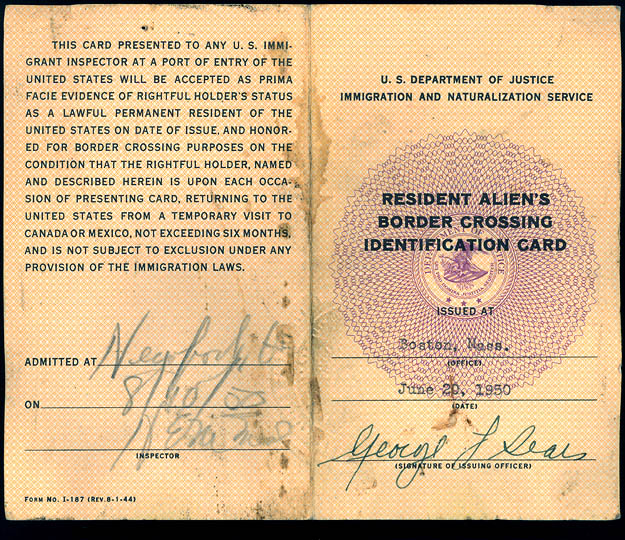 THIS CARD PRESENTED TO ANY U. S. IMMI-
GRANT INSPECTOR AT A PORT OF ENTRY OF THE
UNITED STATES WILL BE ACCEPTED AS PRIMA
FACIE EVIDENCE OF RIGHTFUL HOLDER'S STATUS
AS A LAWFUL PERMANENT RESIDENT OF THE
UNITED STATES ON DATE OF ISSUE, AND HONOR-
ED FOR BORDER CROSSING PURPOSES ON THE
CONDITION THAT THE RIGHTFUL HOLDER, NAMED
AND DESCRIBED HEREIN IS UPON EACH OCCA-
SION OF PRESENTING CARD, RETURNING TO THE
UNITED STATES FROM A TEMPORARY VISIT TO
CANADA OR MEXICO, NOT EXCEEDING SIX MONTHS,
AND IS NOT SUBJECT TO EXCLUSION UNDER ANY
PROVISION OF THE IMMIGRATION LAWS.
ADMITTED AT
ON
INSPECTOR
FORM NO. I-187 (REV. 8-1-44)
U. S. DEPARTMENT OF JUSTICE
IMMIGRATION AND NATURALIZATION SERVICE
RESIDENT ALIEN'S
BORDER CROSSING
IDENTIFICATION CARD
ISSUED AT
Boston, Mass.
(OFFICE)
June 20, 1950
(DATE)
George L Sears
(SIGNATURE OF ISSUING OFFICER)